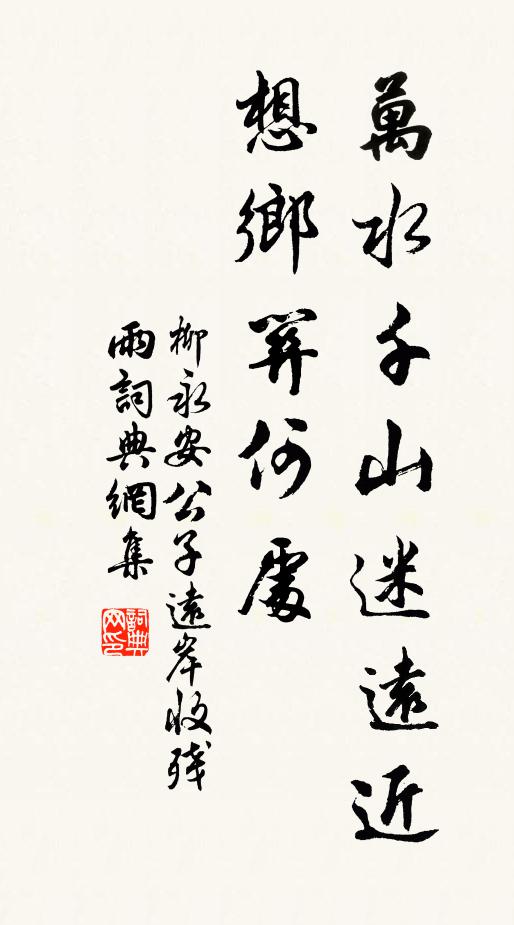 萬水千山迷遠近
想鄉關何處
柳永安公子遠岸收残
雨詞典網集
詞典網印